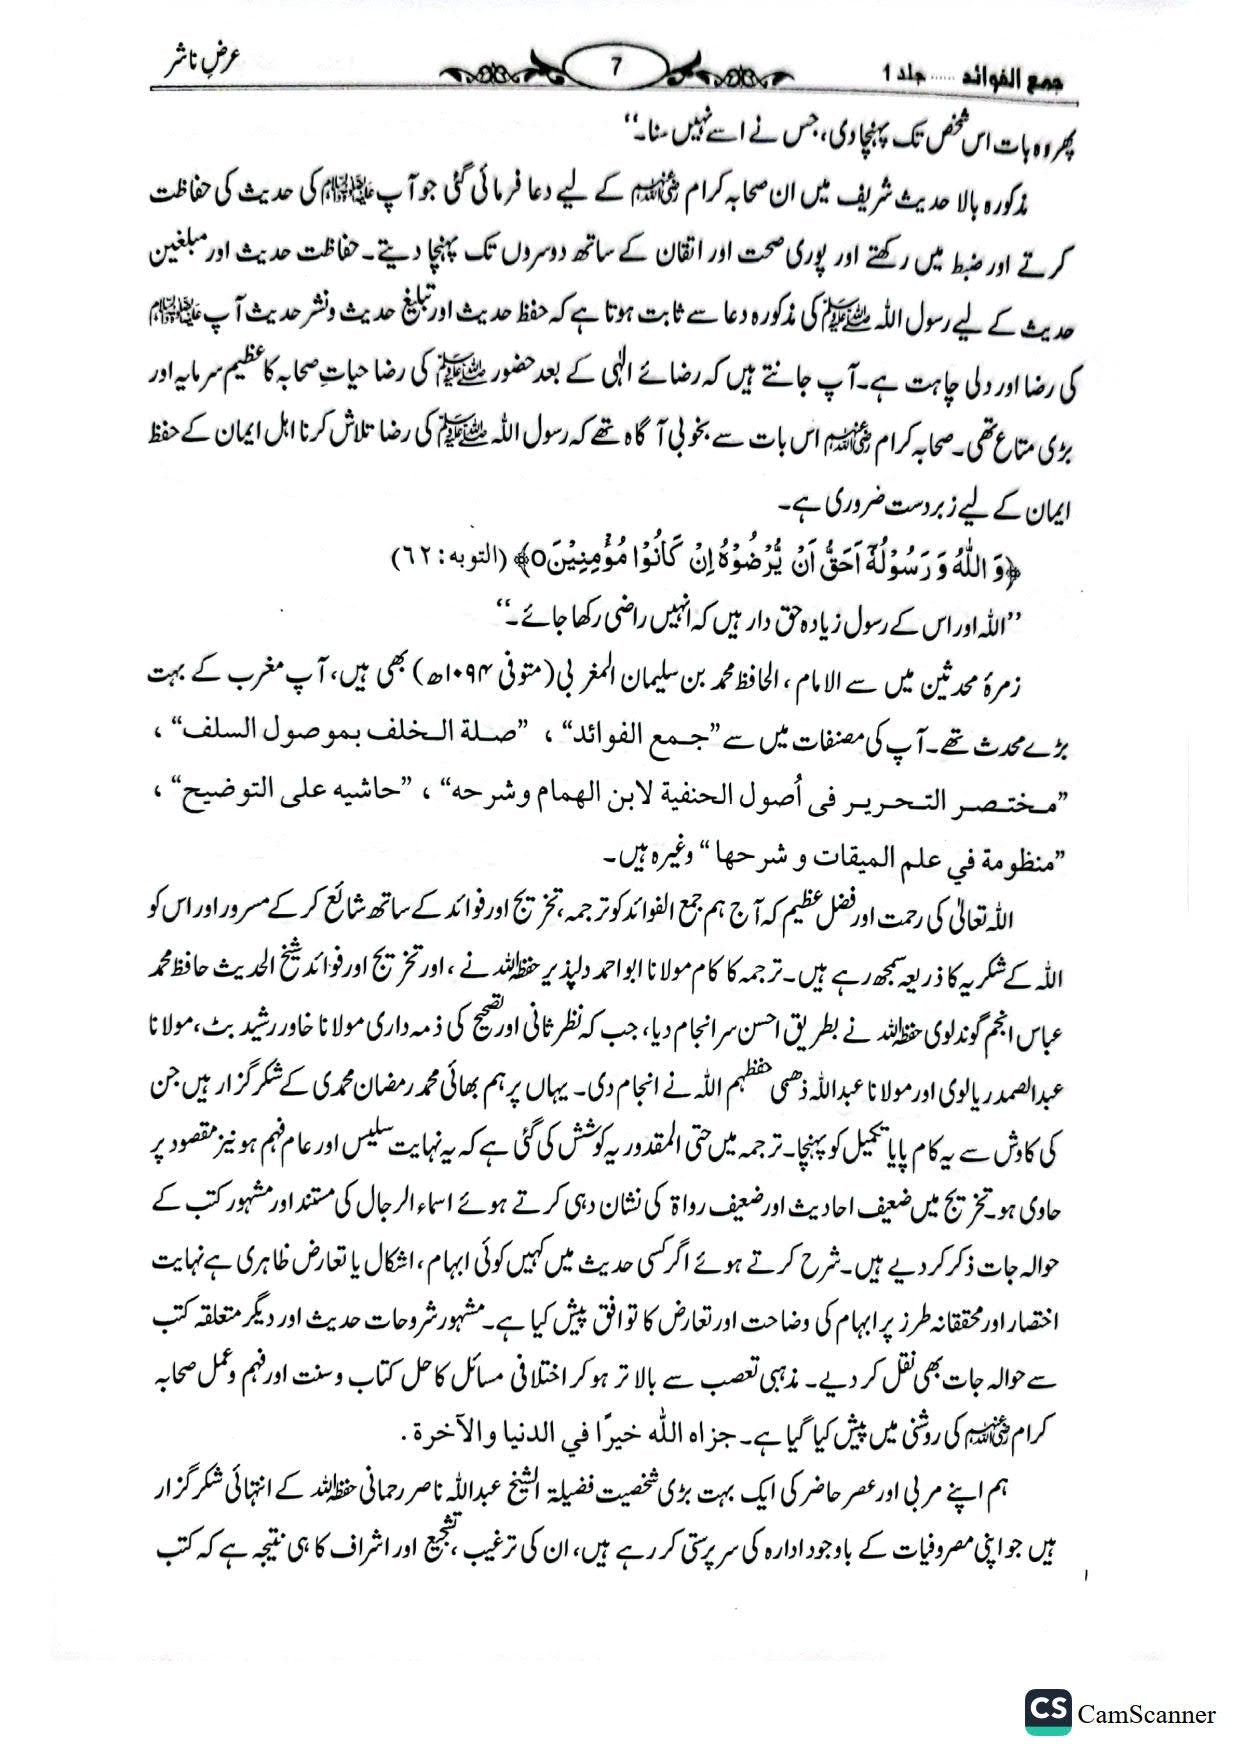 جمع الفوائد ..... جلد 1
7
عرضِ ناشر
پھر وہ بات اس شخص تک پہنچا دی، جس نے اسے نہیں سنا۔‘‘
مذکورہ بالا حدیث شریف میں ان صحابہ کرام رضی اللہ عنہم کے لیے دعا فرمائی گئی جو آپ صلی اللہ علیہ وسلم کی حدیث کی حفاظت
کرتے اور ضبط میں رکھتے اور پوری صحت اور اتقان کے ساتھ دوسروں تک پہنچا دیتے۔ حفاظت حدیث اور مبلغین
حدیث کے لیے رسول اللہ ﷺ کی مذکورہ دعا سے ثابت ہوتا ہے کہ حفظ حدیث اور تبلیغ حدیث ونشر حدیث آپ صلی اللہ علیہ وسلم
کی رضا اور دلی چاہت ہے۔ آپ جانتے ہیں کہ رضائے الٰہی کے بعد حضور ﷺ کی رضا حیاتِ صحابہ کا عظیم سرمایہ اور
بڑی متاع تھی۔ صحابہ کرام رضی اللہ عنہم اس بات سے بخوبی آگاہ تھے کہ رسول اللہ ﷺ کی رضا تلاش کرنا اہل ایمان کے حفظ
ایمان کے لیے زبردست ضروری ہے۔
﴿وَاللّٰهُ وَرَسُوْلُهٗٓ اَحَقُّ اَنْ يُّرْضُوْهُ اِنْ كَانُوْا مُؤْمِنِيْنَ٥﴾ (التوبه: ٦٢)
’’اللہ اور اس کے رسول زیادہ حق دار ہیں کہ انہیں راضی رکھا جائے۔‘‘
زمرۂ محدثین میں سے الامام، الحافظ محمد بن سلیمان المغربی (متوفی ۱۰۹۴ھ) بھی ہیں، آپ مغرب کے بہت
بڑے محدث تھے۔ آپ کی مصنفات میں سے ”جمع الفوائد“ ، ”صلة الخلف بموصول السلف“ ،
”مختصر التحریر فی أصول الحنفیة لابن الهمام وشرحه“ ، ”حاشیه علی التوضیح“ ،
”منظومة في علم المیقات و شرحها“ وغیرہ ہیں۔
اللہ تعالیٰ کی رحمت اور فضل عظیم کہ آج ہم جمع الفوائد کو ترجمہ، تخریج اور فوائد کے ساتھ شائع کر کے مسرور اور اس کو
اللہ کے شکریہ کا ذریعہ سمجھ رہے ہیں۔ ترجمہ کا کام مولانا ابو احمد دلپذیر حفظہ اللہ نے، اور تخریج اور فوائد شیخ الحدیث حافظ محمد
عباس انجم گوندلوی حفظہ اللہ نے بطریق احسن سرانجام دیا، جب کہ نظر ثانی اور تصحیح کی ذمہ داری مولانا خاور رشید بٹ، مولانا
عبدالصمد ریالوی اور مولانا عبداللہ ذھبی حفظہم اللہ نے انجام دی۔ یہاں پر ہم بھائی محمد رمضان محمدی کے شکر گزار ہیں جن
کی کاوش سے یہ کام پایا تکمیل کو پہنچا۔ ترجمہ میں حتی المقدور یہ کوشش کی گئی ہے کہ یہ نہایت سلیس اور عام فہم ہو نیز مقصود پر
حاوی ہو۔ تخریج میں ضعیف احادیث اور ضعیف رواۃ کی نشان دہی کرتے ہوئے اسماء الرجال کی مستند اور مشہور کتب کے
حوالہ جات ذکر کر دیے ہیں۔ شرح کرتے ہوئے اگر کسی حدیث میں کہیں کوئی ابہام، اشکال یا تعارض ظاہری ہے نہایت
اختصار اور محققانہ طرز پر ابہام کی وضاحت اور تعارض کا توافق پیش کیا ہے۔ مشہور شروحات حدیث اور دیگر متعلقہ کتب
سے حوالہ جات بھی نقل کر دیے۔ مذہبی تعصب سے بالا تر ہو کر اختلافی مسائل کا حل کتاب و سنت اور فہم وعمل صحابہ
کرام رضی اللہ عنہم کی روشنی میں پیش کیا گیا ہے۔ جزاه الله خیرًا في الدنیا والآخرة .
ہم اپنے مربی اور عصر حاضر کی ایک بہت بڑی شخصیت فضیلۃ الشیخ عبداللہ ناصر رحمانی حفظہ اللہ کے انتہائی شکر گزار
ہیں جو اپنی مصروفیات کے باوجود ادارہ کی سرپرستی کر رہے ہیں، ان کی ترغیب، تشجیع اور اشراف کا ہی نتیجہ ہے کہ کتب
CS CamScanner